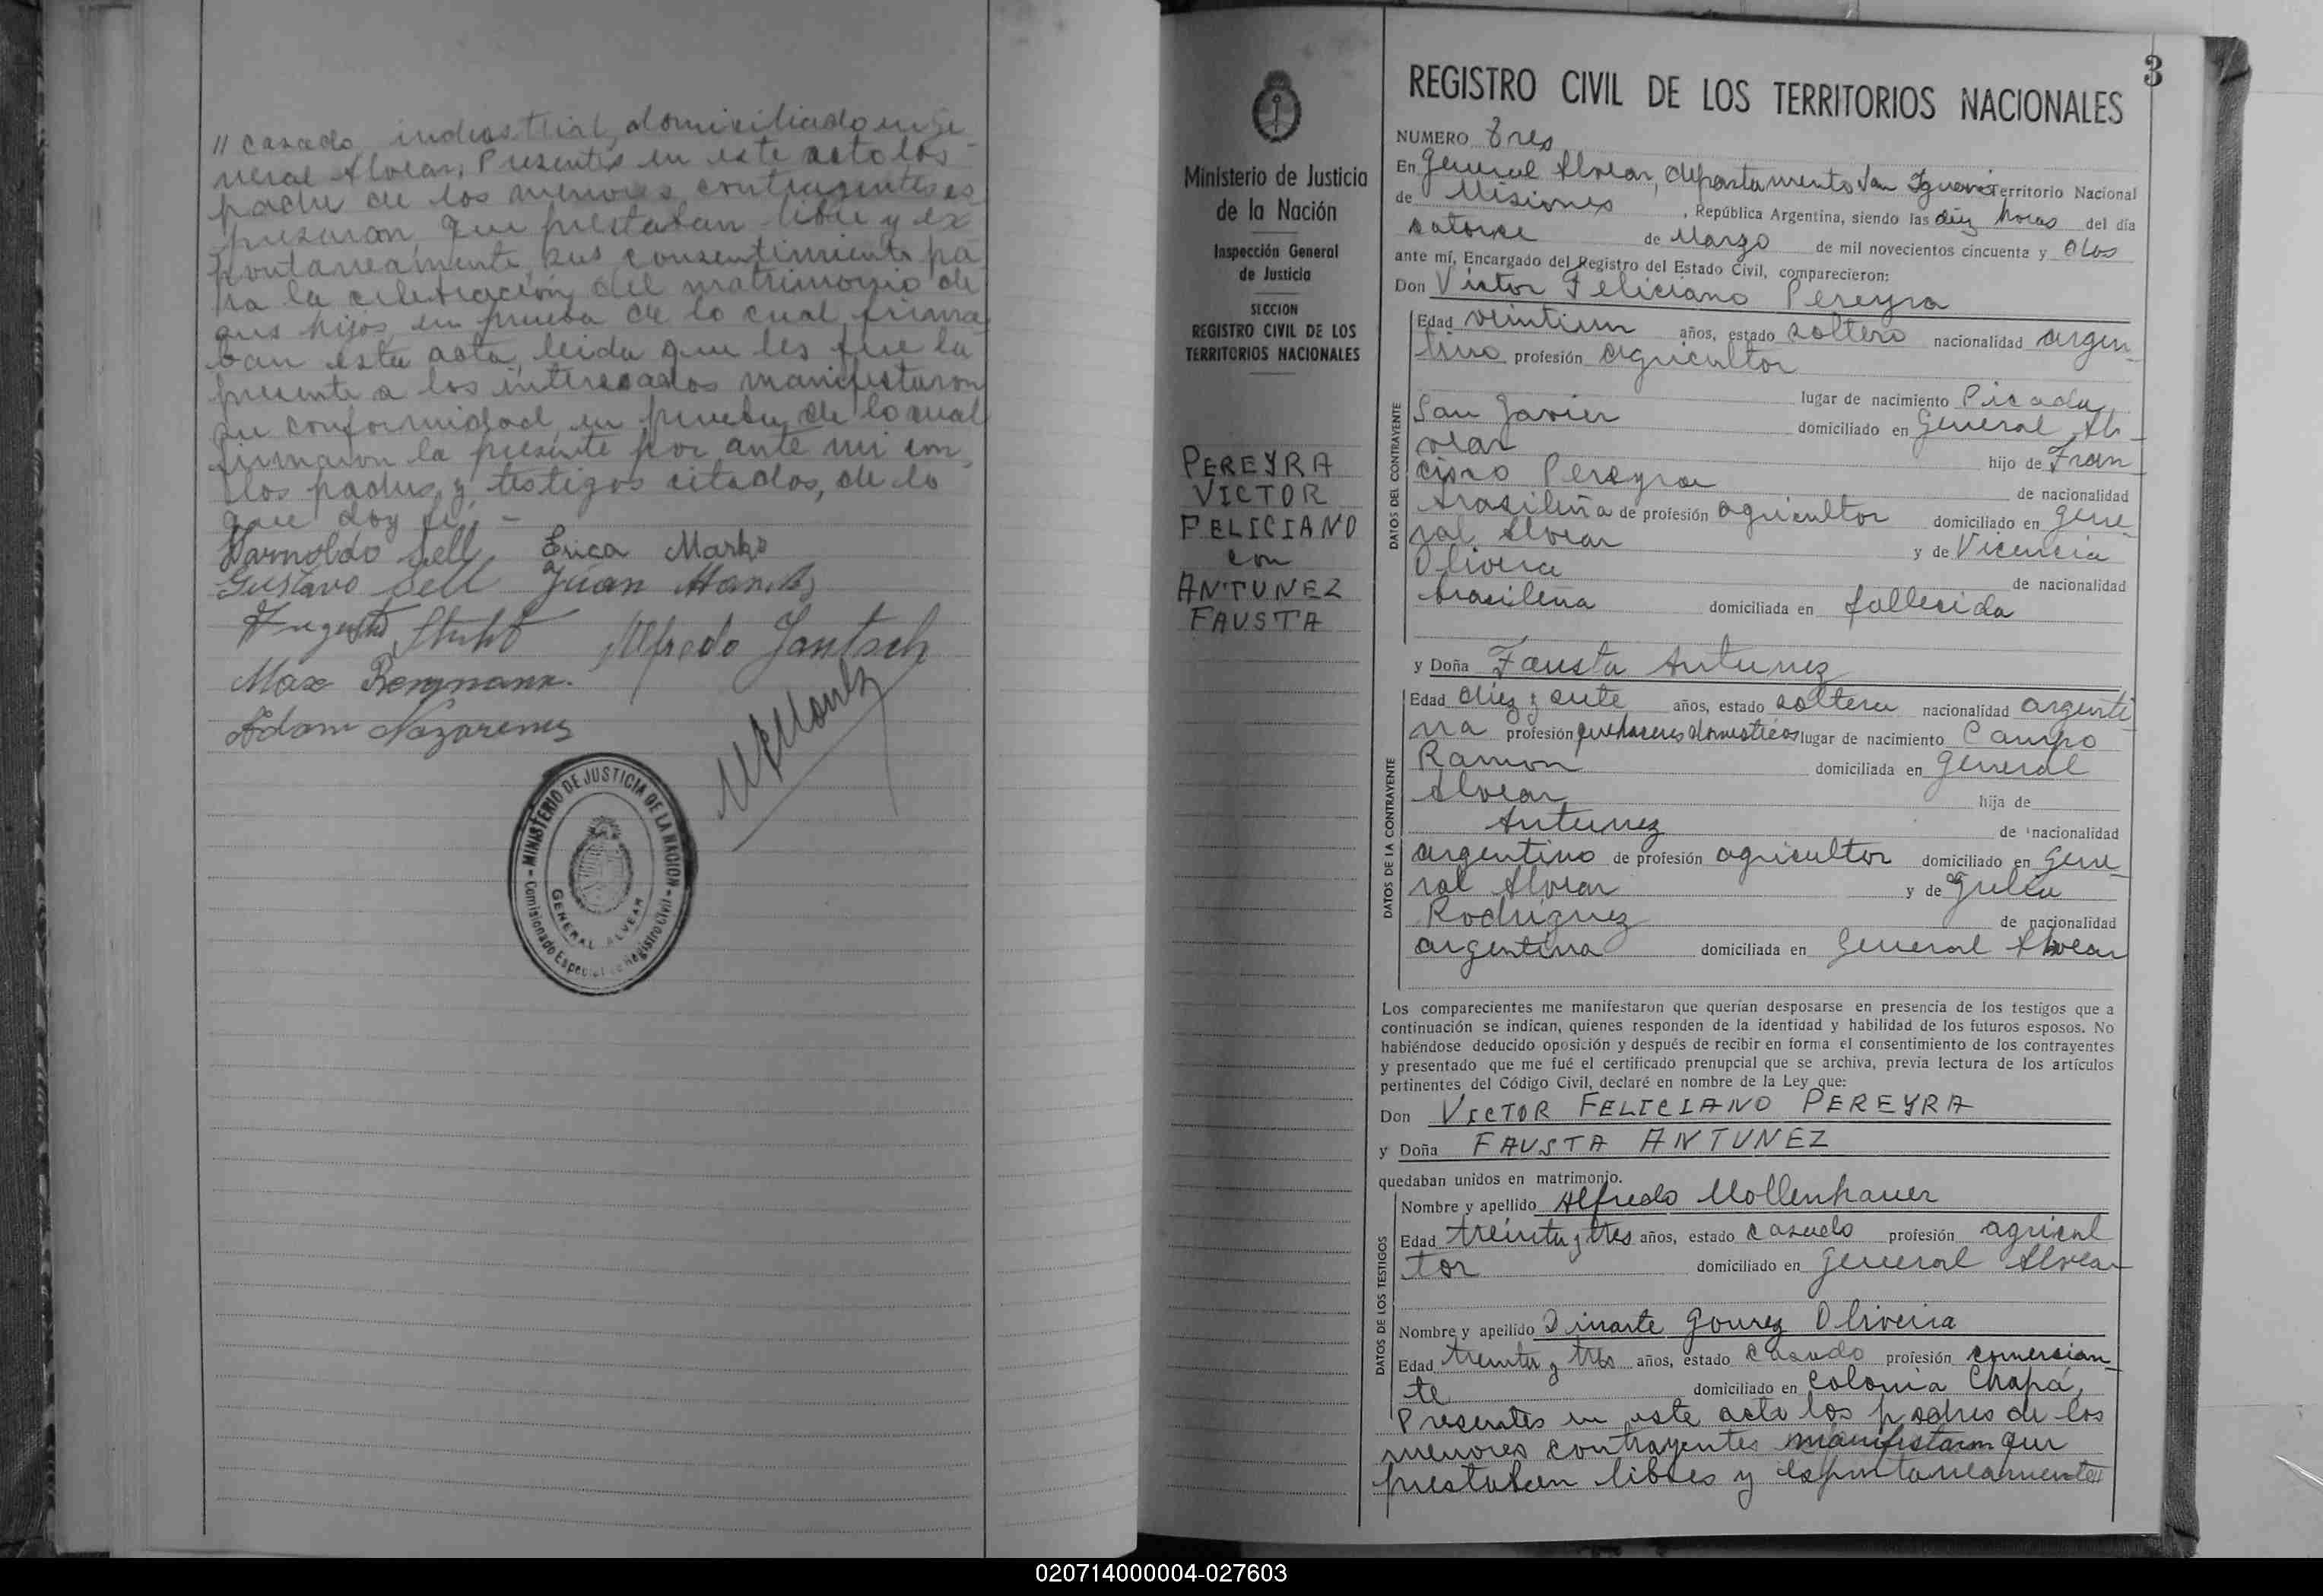 " casado, industrial, domiciliado en Ge
neral Alvear, Presentes en este acto los
padres de los menores contrayentes ex
presaron que prestaban libre y es
pontaneamente sus consentimiento pa
ra la celebración del matrimonio de
sus hijos en prueba de lo cual firma
ban esta acta, leida que les fue la
presente a los interesados manifestaron
su conformidad en prueba de lo cual
firmaron la presente por ante mi con
los padres y testigos citados, de lo
que doy fe, -
Warnoldo Sell Erica Marks
Gustavo Sell Juan Marks
Alfredo Jantsch
Max Bergmann.
Adam Nozarenez
MINISTERIO DE JUSTICIA DE LA NACION
GENERAL ALVEAR
Comisionado Especial de Registro Civil
3
Ministerio de Justicia
de la Nación
Inspección General
de Justicia
SECCION
REGISTRO CIVIL DE LOS
TERRITORIOS NACIONALES
PEREYRA
VICTOR
FELICIANO
con
ANTUNEZ
FAUSTA
REGISTRO CIVIL DE LOS TERRITORIOS NACIONALES
NUMERO Tres
En General Alvear, departamento San Ignacio Territorio Nacional
de Misiones, República Argentina, siendo las diez horas del día
catorce de Marzo de mil novecientos cincuenta y dos
ante mí, Encargado del Registro del Estado Civil, comparecieron:
Don Victor Feliciano Pereyra
DATOS DEL CONTRAYENTE
Edad veintiun años, estado soltero nacionalidad argen
tino profesión agricultor
lugar de nacimiento Picada
San Javier domiciliado en General Al
vear hijo de Fran
cisco Pereyra de nacionalidad
brasileña de profesión agricultor domiciliado en Gene
ral Alvear y de Vicencia
Olivera de nacionalidad
brasilena domiciliada en fallecida
y Doña Fausta Antunez
DATOS DE LA CONTRAYENTE
Edad diez y siete años, estado soltera nacionalidad argenti
na profesión quehaceres domesticos lugar de nacimiento Campo
Ramon domiciliada en General
Alvear hija de
Antunez de nacionalidad
argentino de profesión agricultor domiciliado en Gene
ral Alvear y de Julia
Rodriguez de nacionalidad
argentina domiciliada en General Alvear
Los comparecientes me manifestaron que querían desposarse en presencia de los testigos que a
continuación se indican, quienes responden de la identidad y habilidad de los futuros esposos. No
habiéndose deducido oposición y después de recibir en forma el consentimiento de los contrayentes
y presentado que me fué el certificado prenupcial que se archiva, previa lectura de los artículos
pertinentes del Código Civil, declaré en nombre de la Ley que:
Don VICTOR FELICIANO PEREYRA
y Doña FAUSTA ANTUNEZ
quedaban unidos en matrimonio.
DATOS DE LOS TESTIGOS
Nombre y apellido Alfredo Mollenhauer
Edad treinta y tres años, estado casado profesión agricul
tor domiciliado en General Alvear
Nombre y apellido Dinarte Gomez Oliveira
Edad treinta y tres años, estado casado profesión comercian
te domiciliado en Colonia Chapá,
Presentes en este acto los padres de los
menores contrayentes manifestaron que
prestaban libres y espontaneamente "
020714000004-027603